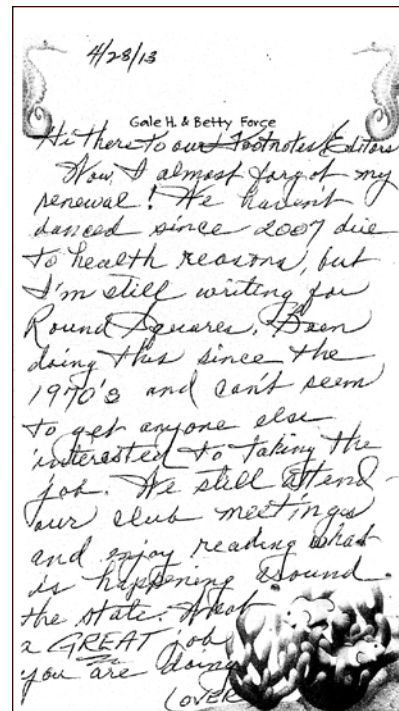 4/28/13
Gale H. & Betty Force
Hi there to our Footnotes Editors
Wow, I almost forgot my
renewal! We haven't
danced since 2007 due
to health reasons, but
I'm still writing for
Round Squares. Been
doing this since the
1970's and can't seem
to get anyone else
interested to taking the
job. We still attend
our club meetings
and enjoy reading what
is happening around
the state. What
a GREAT job
you are doing
(OVER